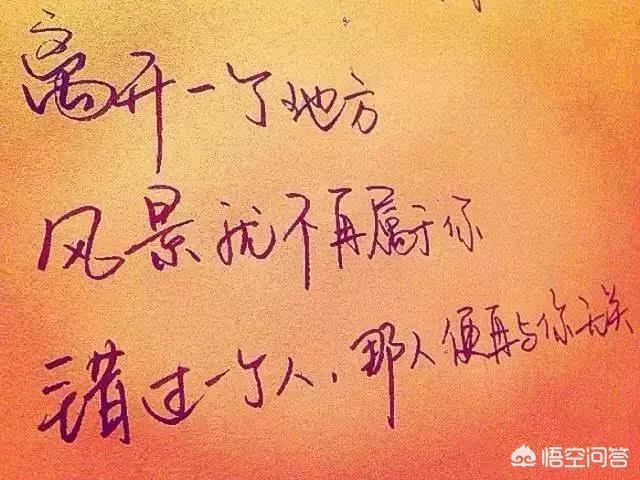 离开一个地方
风景就不再属于你
错过一个人，那人便再与你无关
悟空问答